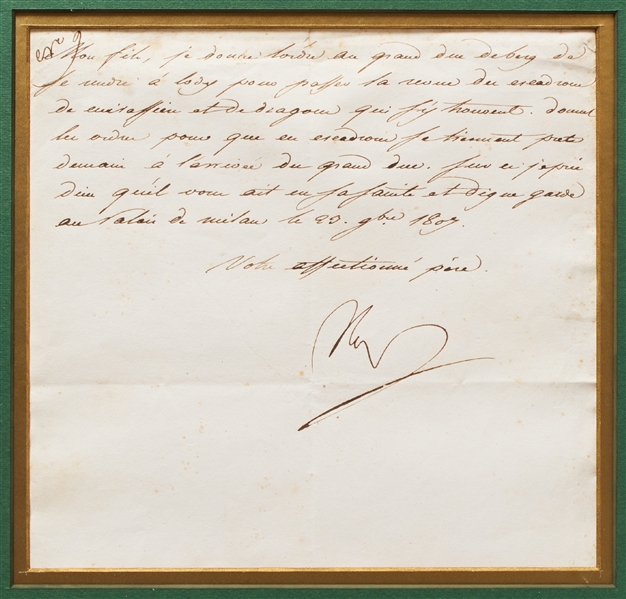 Mon fils, je donne l'ordre au grand duc de berg de
se rendre à lody pour passer la revue des escadrons
de cuirassiers et de dragons qui s'y trouvent. donnez
les ordres pour que ces escadrons se tiennent prets
demain à l'arrivée du grand duc. sur ce je prie
dieu qu'il vous ait en sa sainte et digne garde
au Palais de milan le 23. 9bre 1807.
Votre affectionné père.